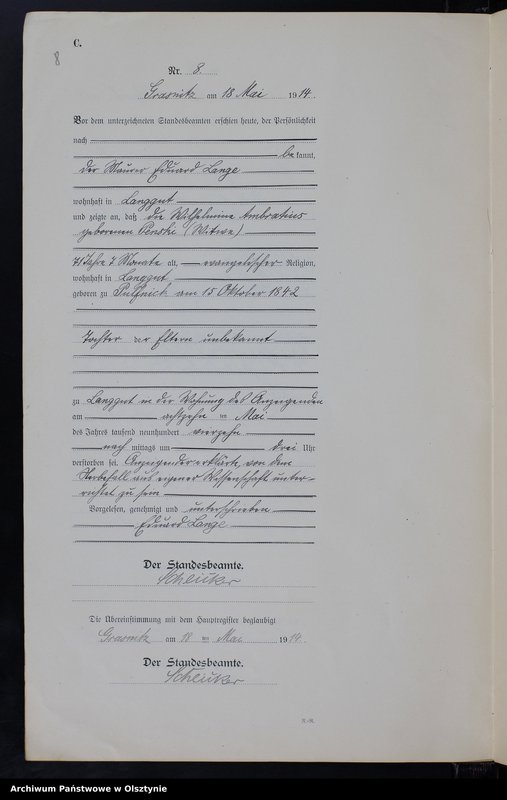 C.
8
Nr. 8.
Grasnitz am 18 Mai 1914.
Vor dem unterzeichneten Standesbeamten erschien heute, der Persönlichkeit
nach
bekannt,
der Maurer Eduard Lange
wohnhaft in Langgut
und zeigte an, daß die Wilhelmine Ambrosius
geborenen Penski (Witwe)
71 Jahre 7 Monate alt, evangelischer Religion,
wohnhaft in Langgut
geboren zu am 15 Oktober 1842
Tochter der Eltern unbekannt
zu Langgut in der Wohnung des Anzeigenden
am achtzehn ten Mai
des Jahres tausend neunhundert vierzehn
nach mittags um drei Uhr
verstorben sei. Anzeigender erklärte, von dem
Sterbefall aus eigener Wissenschaft unter-
richtet zu sein
Vorgelesen, genehmigt und unterschrieben
Eduard Lange
Der Standesbeamte.
Schenker
Die Übereinstimmung mit dem Hauptregister beglaubigt
Grasnitz am 18 ten Mai 1914.
Der Standesbeamte.
Schenker
Archiwum Państwowe w Olsztynie